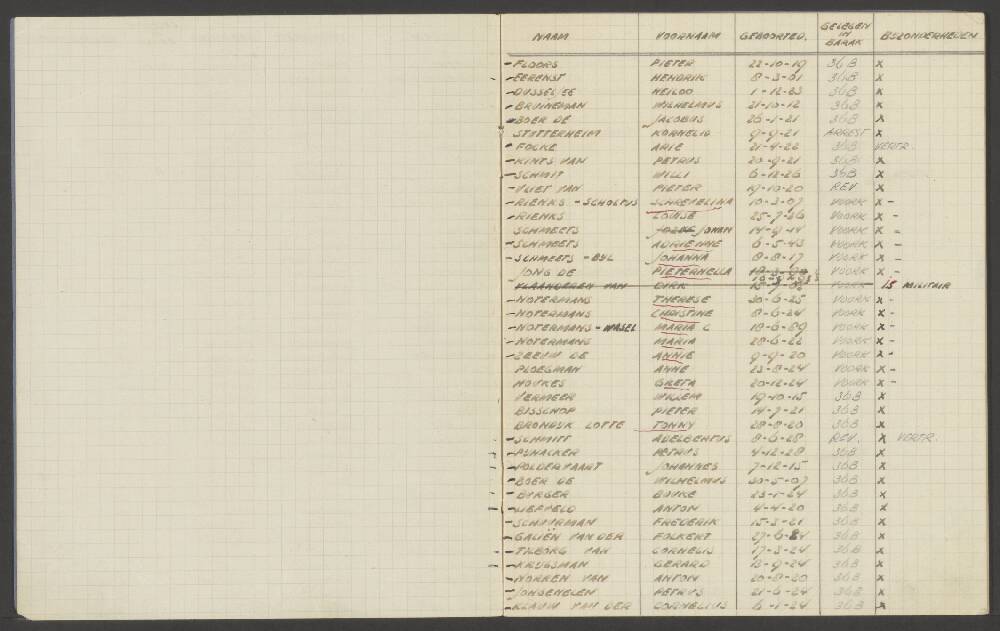 NAAM VOORNAAM GEBOORTED. GELEGEN IN BARAK BIJZONDERHEDEN
- FLOORS PIETER 22-10-19 36B x
- EERENST HENDRIK 8-3-01 36B x
- DUSSELJEE HEILOO 1-12-23 36B x
- BRUINEMAN WILHELMUS 21-10-12 36B x
- BOER DE JACOBUS 26-1-21 36B x
STUTTERHEIM KORNELIS 9-9-21 ARREST x
- FOCKE ARIE 21-4-22 36B VERTR.
- KINTS VAN PETRUS 20-9-21 36B x
- SCHMIT WILLI 6-12-26 36B x
- VLIET VAN PIETER 19-10-20 REV x
- RIENKS - SCHOLTUS SCHREVELINA 10-3-07 VOORK x -
- RIENKS LOUISE 25-7-36 VOORK x -
SCHMEETS JOHAN 14-9-14 VOORK x -
- SCHMEETS ADRIENNE 6-5-43 VOORK x -
- SCHMEETS - BIJL JOHANNA 8-8-17 VOORK x -
JONG DE PIETERNELLA VOORK x -
VLAANDEREN VAN DIRK VOORK is MILITAIR
- NOTERMANS THERESE 30-6-25 VOORK x -
- NOTERMANS CHRISTINE 8-6-24 VORK x -
- NOTERMANS - WASEL MARIA C 18-6-89 VOORK x -
- NOTERMANS MARIA 28-6-22 VOORK x -
- ZEEUW DE ANNIE 9-9-20 VOORK x -
PLOEGMAN ANNE 23-8-24 VOORK x -
HOUKES GRETA 20-12-24 VOORK x -
VERMEER WILLEM 19-10-15 36B x
BISSCHOP PIETER 14-7-21 36B x
BRONDIJK LOTTE TONNY 28-8-20 36B x
- SCHMITT ADELBERTUS 8-6-28 REV. x VERTR.
- PIJNACKER PETRUS 4-12-28 36B x
- POLDERVAART JOHANNES 7-12-15 36B x
- BOER DE WILHELMUS 30-5-07 36B x
- BURGER BOUKE 23-1-24 36B x
- LIEFVELD ANTON 4-4-20 36B x
- SCHUURMAN FREDERIK 15-3-21 36B x
- GALIËN VAN DER FOLKERT 27-6-24 36B x
- TILBORG VAN CORNELIS 17-3-24 36B x
- KRUGSMAN GERARD 13-9-24 36B x
- NORREN VAN ANTON 20-8-20 36B x
- JONGENELEN PETRUS 21-6-24 36B x
- KLAUW VAN DER CORNELIUS 6-1-24 36B x